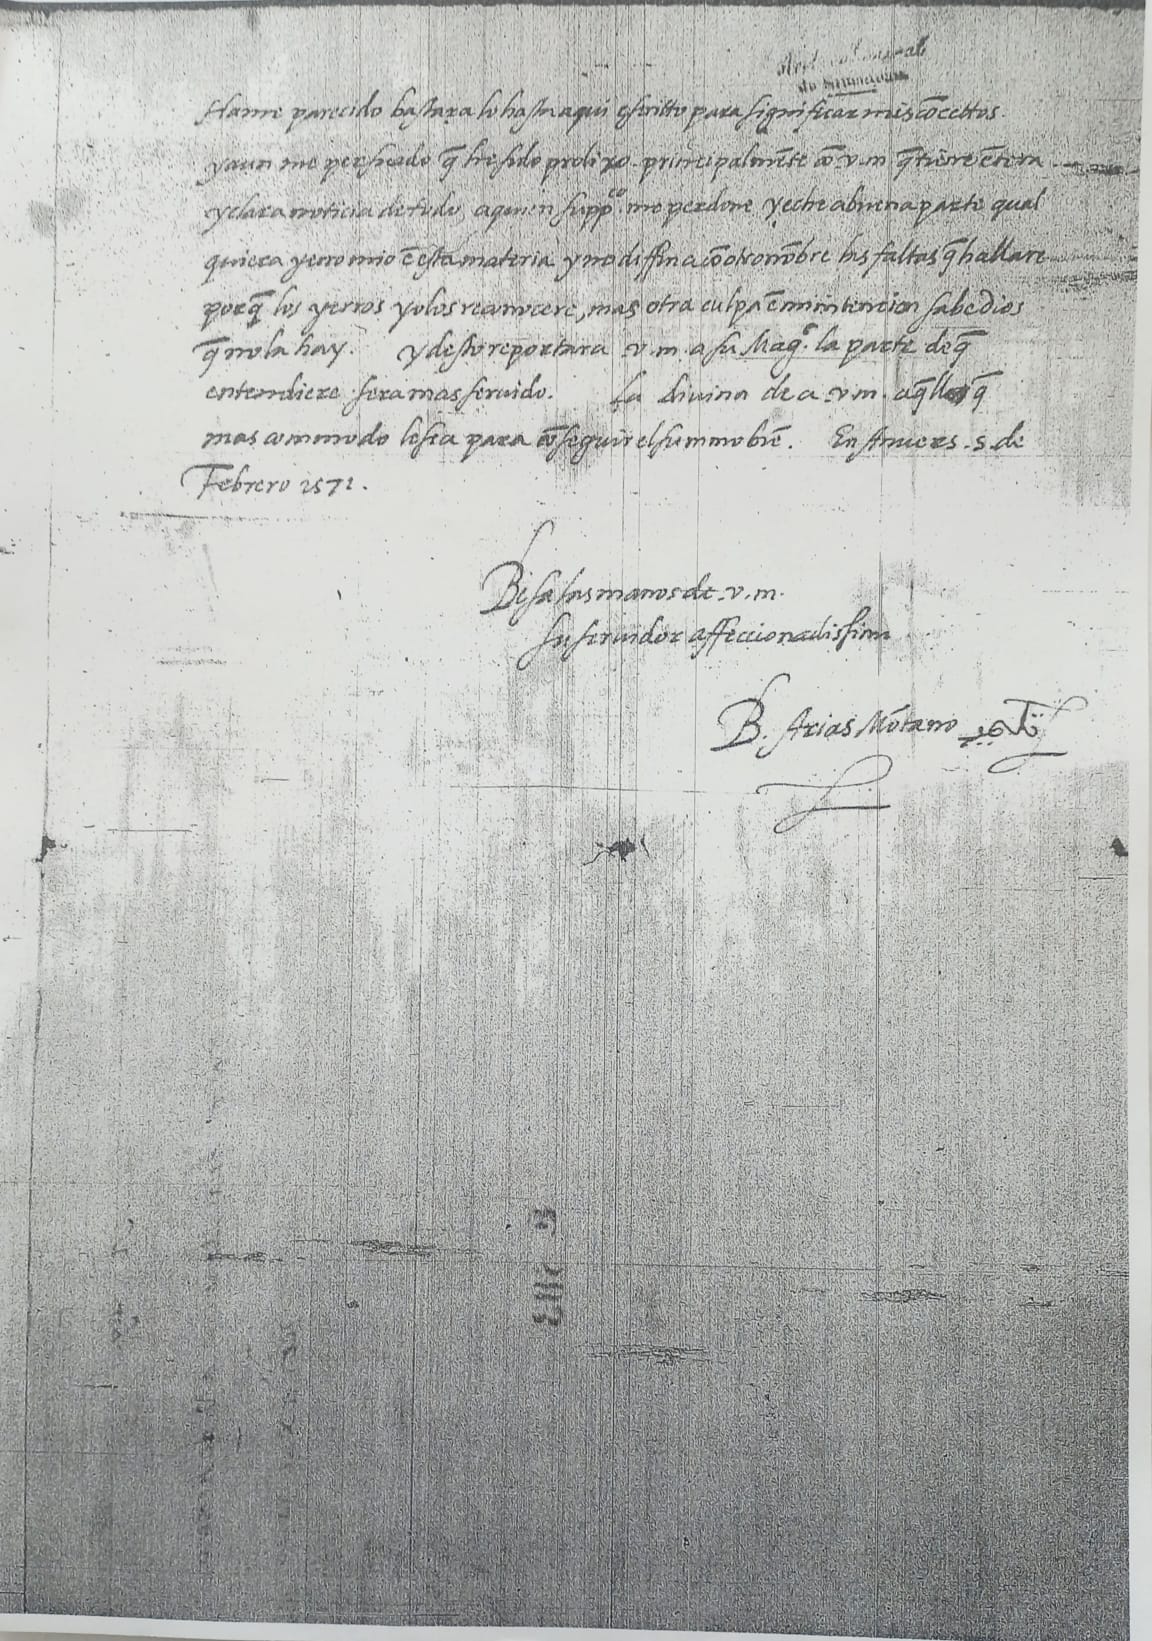 Archivo General
de Simancas
Hame parecido bastara lo hasta aqui escritto para significar mis cõcettos.
y aun me persuado q̃ he sido prolixo principalmẽte cõ v.m q̃ tiene ẽtera
y clara noticia de todo, a quien supp.co me perdone y eche a buena parte qual
quiera yerro mio ẽ esta materia y no diffina cõ otro nõbre las faltas q̃ hallare
porq̃ los yerros yo los reconocere, mas otra culpa ẽ mi intencion sabe dios
q̃ no la hay. y desto reportara v.m. a su Mag.d la parte de q̃
entendiere sera mas seruido. La diuina de a v.m. aq̃llo q̃
mas commodo le sea para cõseguir el summo biẽ. En Anuers .5. de
Febrero 1571.
Besa las manos de .v.m.
su seruidor affeccionadissimo
B. Arias Mõtano